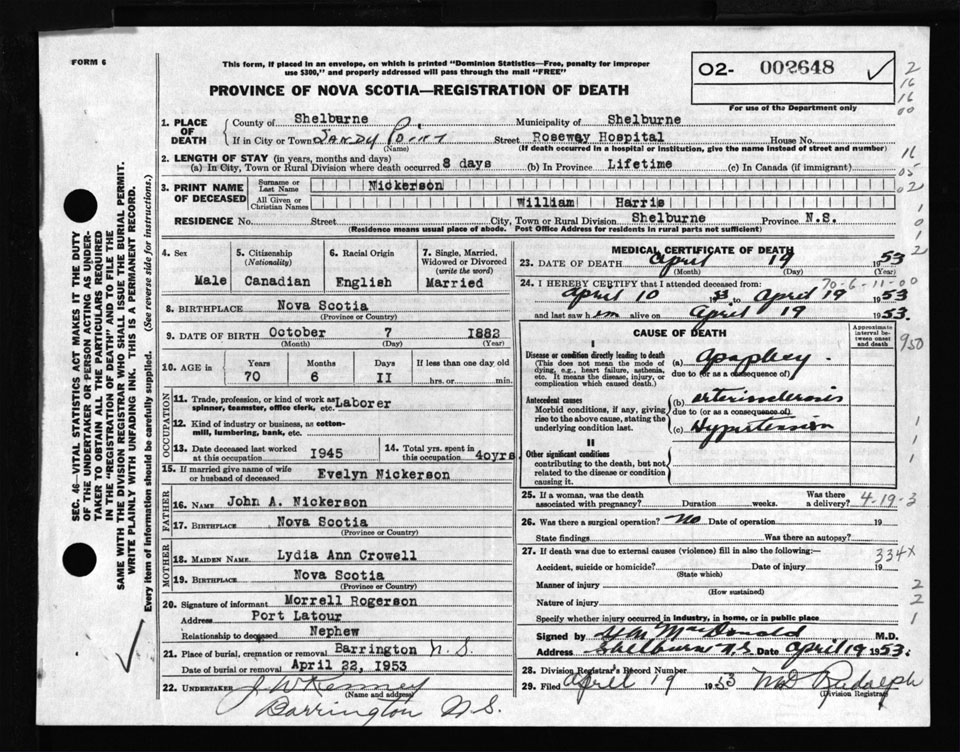 FORM 6
This form, if placed in an envelope, on which is printed "Dominion Statistics—Free, penalty for improper
use $300," and properly addressed will pass through the mail "FREE"
PROVINCE OF NOVA SCOTIA—REGISTRATION OF DEATH
O2- 002648 ✓
For use of the Department only
2
16
16
00
16
05
02
1
0
1
2
1. PLACE OF DEATH
County of Shelburne Municipality of Shelburne
If in City or Town Sandy Point Street Roseway Hospital House No.
(Name) (If death occurred in a hospital or institution, give the name instead of street and number)
2. LENGTH OF STAY (in years, months and days)
(a) In City, Town or Rural Division where death occurred 8 days (b) In Province Lifetime (c) In Canada (if immigrant)
3. PRINT NAME OF DECEASED
Surname or Last Name Nickerson
All Given or Christian Names William Harris
RESIDENCE No. Street City, Town or Rural Division Shelburne Province N.S.
(Residence means usual place of abode. Post Office Address for residents in rural parts not sufficient)
4. Sex
Male
5. Citizenship
(Nationality)
Canadian
6. Racial Origin
English
7. Single, Married,
Widowed or Divorced
(write the word)
Married
8. BIRTHPLACE Nova Scotia
(Province or Country)
9. DATE OF BIRTH October 7 1882
(Month) (Day) (Year)
10. AGE in
Years Months Days If less than one day old
70 6 11 hrs. or min.
OCCUPATION
11. Trade, profession, or kind of work as
spinner, teamster, office clerk, etc. Laborer
12. Kind of industry or business, as cotton-
mill, lumbering, bank, etc.
13. Date deceased last worked
at this occupation 1945
14. Total yrs. spent in
this occupation 40yrs.
15. If married give name of wife
or husband of deceased Evelyn Nickerson
FATHER
16. NAME John A. Nickerson
17. BIRTHPLACE Nova Scotia
(Province or Country)
MOTHER
18. MAIDEN NAME Lydia Ann Crowell
19. BIRTHPLACE Nova Scotia
(Province or Country)
20. Signature of informant Morrell Rogerson
Address Port Latour
Relationship to deceased Nephew
21. Place of burial, cremation or removal Barrington N.S.
Date of burial or removal April 22, 1953
22. UNDERTAKER J W Kenney
(Name and address)
Barrington N.S.
MEDICAL CERTIFICATE OF DEATH
23. DATE OF DEATH April 19 1953
(Month) (Day) (Year)
24. I HEREBY CERTIFY that I attended deceased from: 70-6-11-00
April 10 1953 to April 19 1953
and last saw him alive on April 19 1953.
CAUSE OF DEATH
Approximate
interval be-
tween onset
and death
950
I
Disease or condition directly leading to death
(This does not mean the mode of
dying, e.g., heart failure, asthenia,
etc. It means the disease, injury, or
complication which caused death.)
(a) Apoplexy.
due to (or as a consequence of)
Antecedent causes
Morbid conditions, if any, giving
rise to the above cause, stating the
underlying condition last.
(b) Arteriosclerosis
due to (or as a consequence of)
(c) Hypertension
II
Other significant conditions
contributing to the death, but not
related to the disease or condition
causing it.
1
1
1
25. If a woman, was the death
associated with pregnancy? Duration weeks. Was there
a delivery? 4-19-3
26. Was there a surgical operation? No Date of operation 19
State findings Was there an autopsy?
27. If death was due to external causes (violence) fill in also the following:
334X
Accident, suicide or homicide? Date of injury 19
(State which)
Manner of injury
(How sustained)
Nature of injury
2
2
1
Specify whether injury occurred in industry, in home, or in public place
Signed by MacDonald M.D.
Address Shelburne N.S. Date April 19 1953.
28. Division Registrar's Record Number
29. Filed April 19 1953 Rudolph
(Division Registrar)
SEC. 46—VITAL STATISTICS ACT MAKES IT THE DUTY
OF THE UNDERTAKER OR PERSON ACTING AS UNDER-
TAKER TO OBTAIN ALL THE PARTICULARS REQUIRED
IN THE "REGISTRATION OF DEATH" AND TO FILE THE
SAME WITH THE DIVISION REGISTRAR WHO SHALL ISSUE THE BURIAL PERMIT.
WRITE PLAINLY WITH UNFADING INK. THIS IS A PERMANENT RECORD.
Every item of information should be carefully supplied. (See reverse side for instructions.)
✓